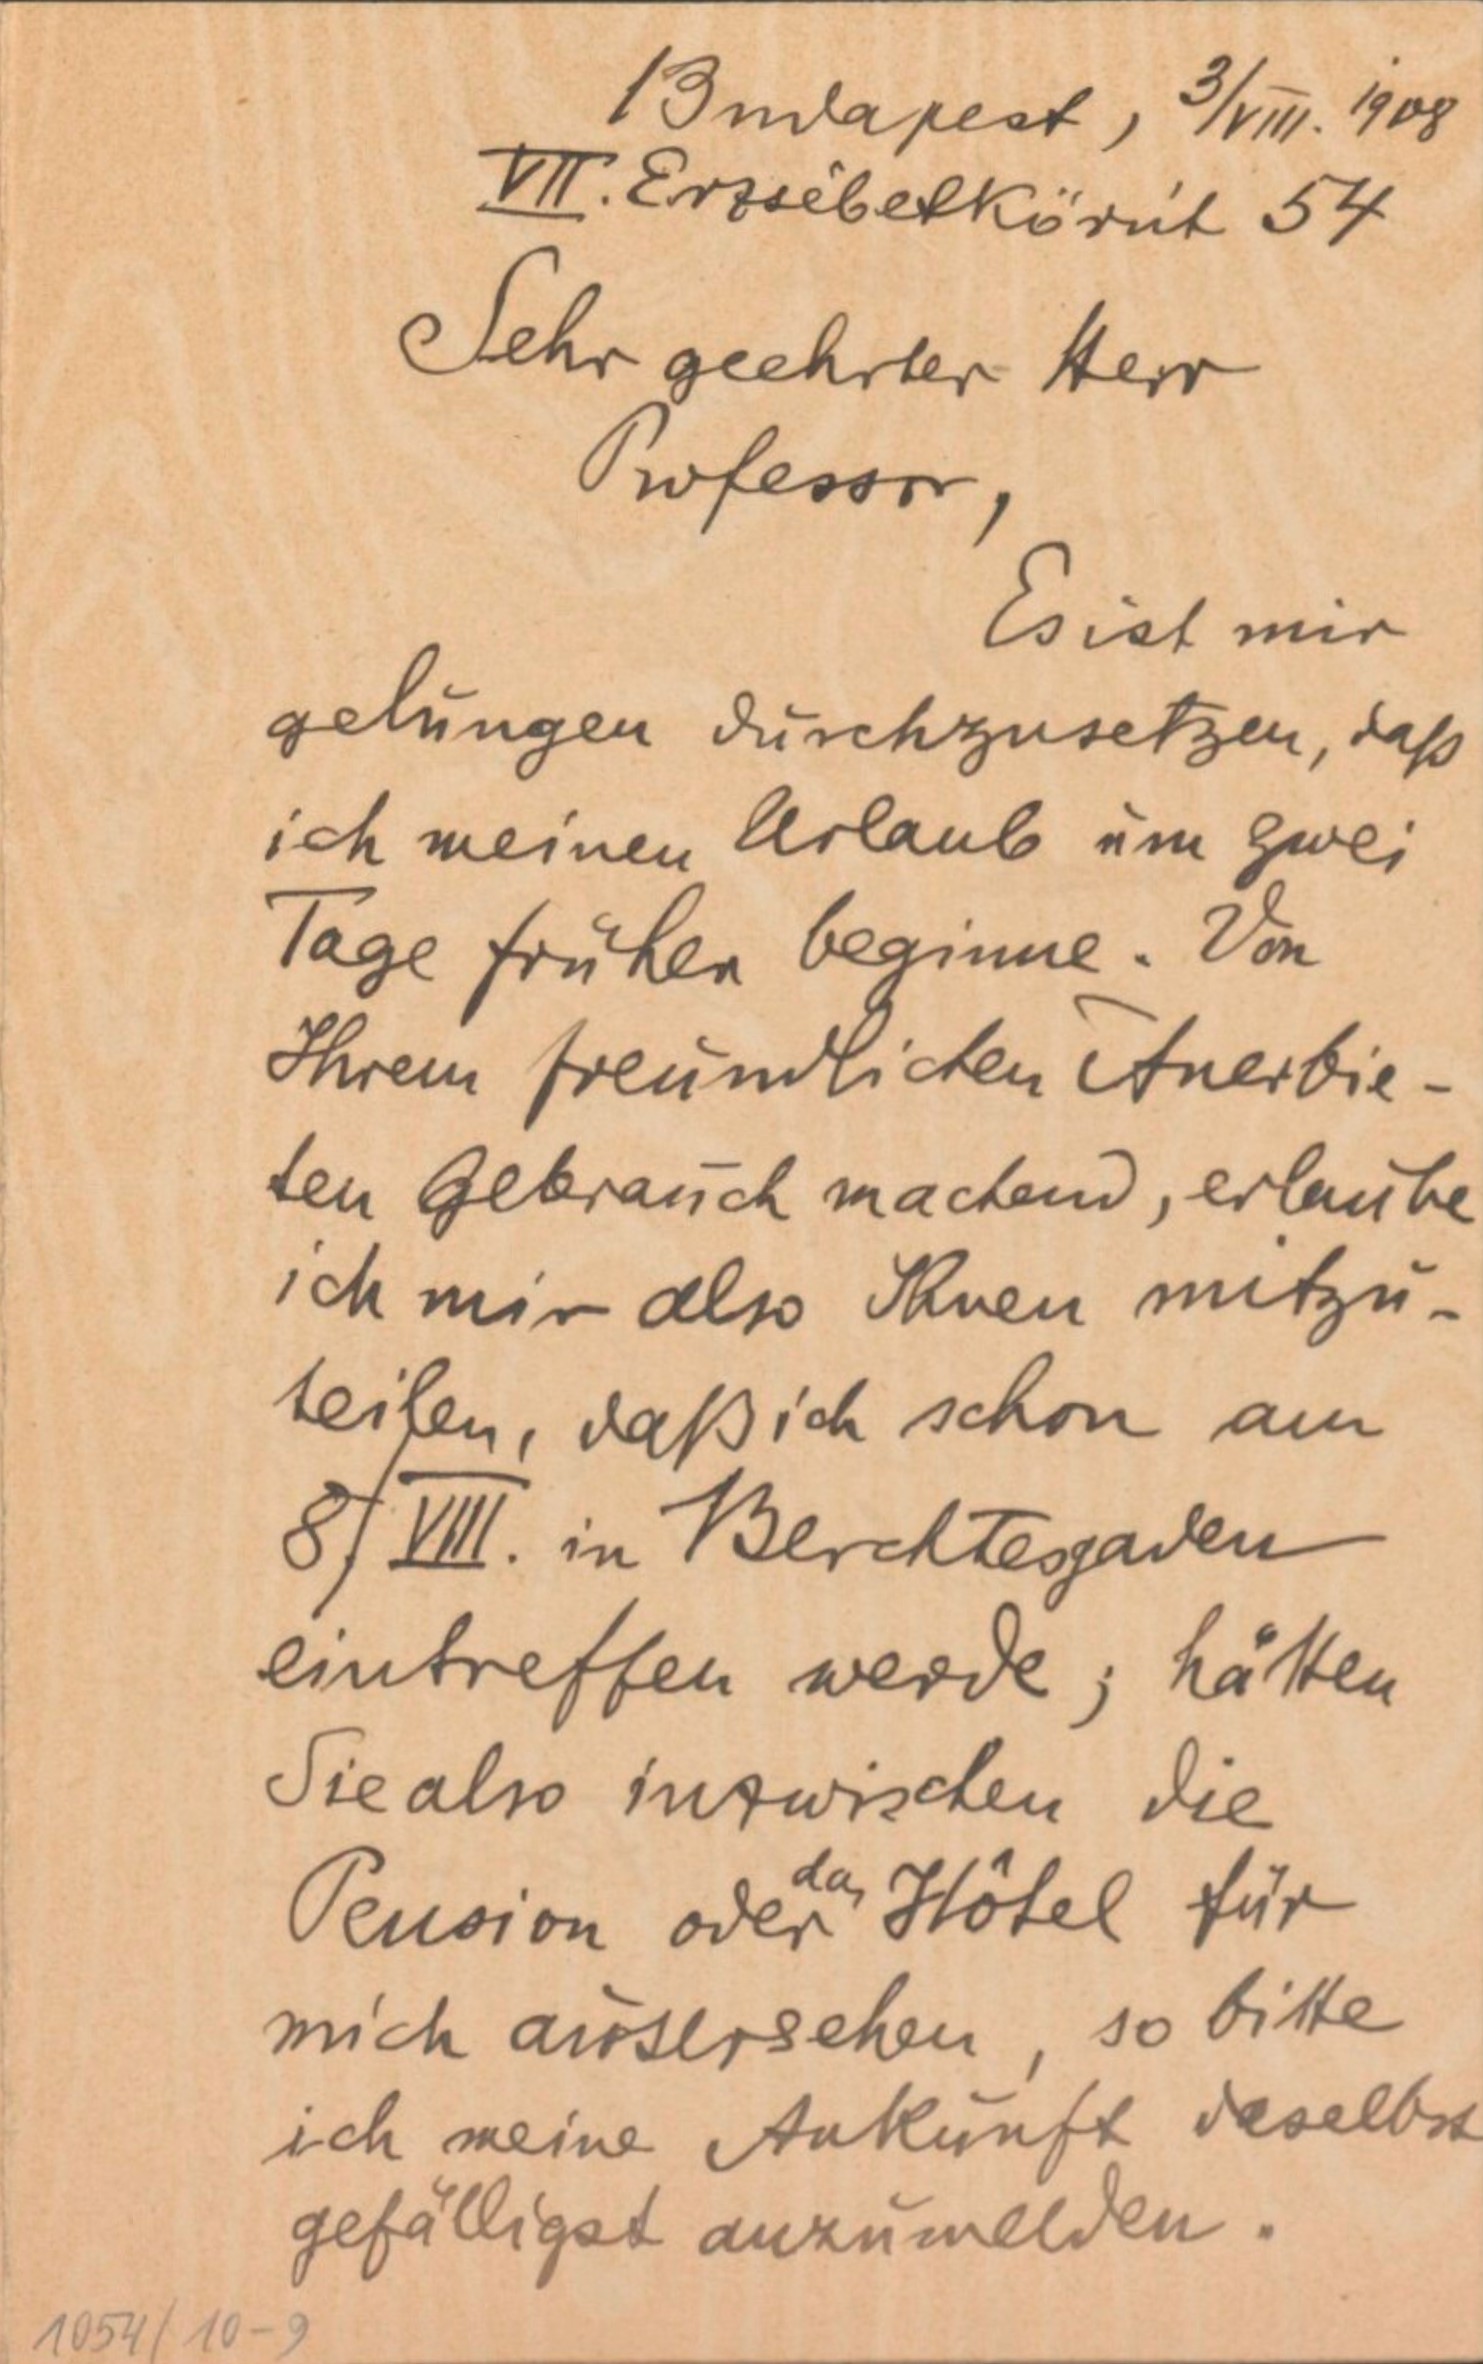 Budapest, 3/VIII. 1908
VII. Erzsébetkörút 54
Sehr geehrter Herr
Professor,
Es ist mir
gelungen durchzusetzen, daß
ich meinen Urlaub um zwei
Tage früher beginne. Von
Ihrem freundlichen Anerbie-
ten Gebrauch machend, erlaube
ich mir also Ihnen mitzu-
teilen, daß ich schon am
8/VIII. in Berchtesgaden
eintreffen werde; hätten
Sie also inzwischen die
Pension oder das Hôtel für
mich ausersehen, so bitte
ich meine Ankunft daselbst
gefälligst anzumelden.
1054/10-9